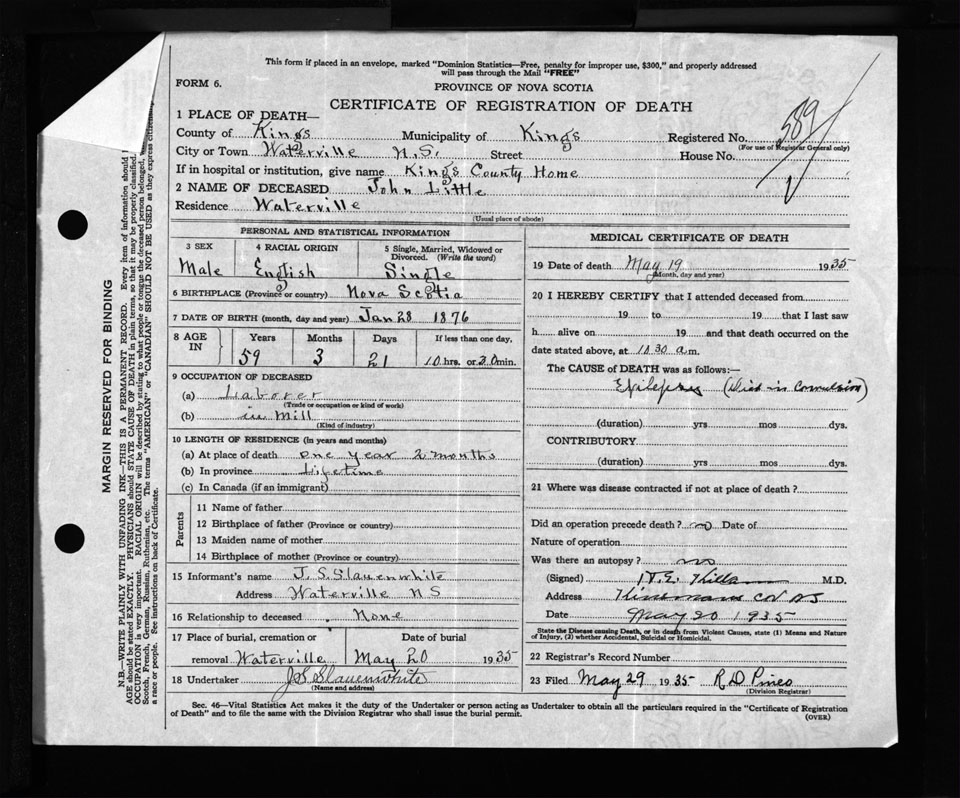 This form if placed in an envelope, marked "Dominion Statistics—Free, penalty for improper use, $300," and properly addressed
will pass through the Mail "FREE"
FORM 6.
PROVINCE OF NOVA SCOTIA
CERTIFICATE OF REGISTRATION OF DEATH
589
1 PLACE OF DEATH—
County of Kings Municipality of Kings Registered No.
(For use of Registrar General only)
City or Town Waterville N.S. Street House No.
If in hospital or institution, give name Kings County Home
2 NAME OF DECEASED John Little
Residence Waterville
(Usual place of abode)
PERSONAL AND STATISTICAL INFORMATION
3 SEX 4 RACIAL ORIGIN 5 Single, Married, Widowed or Divorced. (Write the word)
Male English Single
6 BIRTHPLACE (Province or country) Nova Scotia
7 DATE OF BIRTH (month, day and year) Jan 28 1876
8 AGE IN Years Months Days If less than one day,
59 3 21 10 hrs. or 30 min.
9 OCCUPATION OF DECEASED
(a) Laborer
(Trade or occupation or kind of work)
(b) in Mill
(Kind of industry)
10 LENGTH OF RESIDENCE (in years and months)
(a) At place of death one year 2 months
(b) In province Lifetime
(c) In Canada (if an immigrant)
Parents
11 Name of father
12 Birthplace of father (Province or country)
13 Maiden name of mother
14 Birthplace of mother (Province or country)
15 Informant's name J. S. Slauenwhite
Address Waterville NS
16 Relationship to deceased None
17 Place of burial, cremation or removal Waterville Date of burial May 20 1935
18 Undertaker J S Slauenwhite
(Name and address)
MEDICAL CERTIFICATE OF DEATH
19 Date of death May 19 1935
(Month, day and year)
20 I HEREBY CERTIFY that I attended deceased from
19 to 19 that I last saw
h alive on 19 and that death occurred on
date stated above, at 10 30 a.m.
The CAUSE of DEATH was as follows:—
Epilepsy (Died in convulsion)
(duration) yrs mos dys.
CONTRIBUTORY
(duration) yrs mos dys.
21 Where was disease contracted if not at place of death?
Did an operation precede death? no Date of
Nature of operation
Was there an autopsy? no
(Signed) M.D.
Address
Date May 20 1935
State the Disease causing Death, or in death from Violent Causes, state (1) Means and Nature
of Injury, (2) whether Accidental, Suicidal or Homicidal.
22 Registrar's Record Number
23 Filed May 29 1935 R D Pineo
(Division Registrar)
Sec. 46—Vital Statistics Act makes it the duty of the Undertaker or person acting as Undertaker to obtain all the particulars required in the "Certificate of Registration
of Death" and to file the same with the Division Registrar who shall issue the burial permit.
(OVER)
MARGIN RESERVED FOR BINDING
N.B.—WRITE PLAINLY WITH UNFADING INK—THIS IS A PERMANENT RECORD. Every item of information should
AGE should be stated EXACTLY. PHYSICIANS should STATE CAUSE OF DEATH in plain terms, so that it may be properly classified.
OCCUPATION is very important. RACIAL ORIGIN will be described by stating to what people or tongue the deceased person belonged,
Scotch, French, German, Russian, Ruthenian, etc. The terms "AMERICAN" or "CANADIAN" SHOULD NOT BE USED as they express
a race or people. See instructions on back of Certificate.